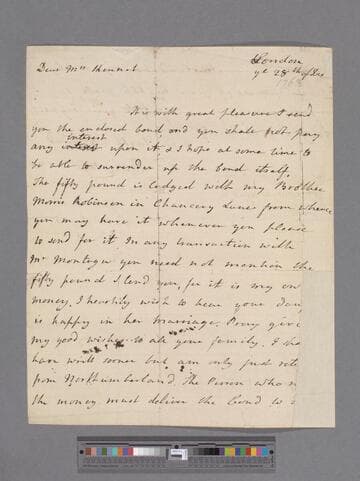 London
Dear Mrs Kennet
ye 28th of Dec
It is with great pleasure I send
you the enclosed bond, and you shall not pay
interest
any interest upon it & I hope at some time to
be able to surrender up the bond itself.
The fifty pound is lodged with my Brother
Morris Robinson in Chancery Lane from whence
you may have it whenever you please
to send for it. In any transaction with
Mr Montagu you need not mention the
fifty pound I lend you, for it is my own
money. I heartily wish to hear your dau
is happy in her marriage. Pray give
my good wishes to all your family. I sho
have writ sooner but am only just ret
from Northumberland. The Person who
the money must deliver the bond to